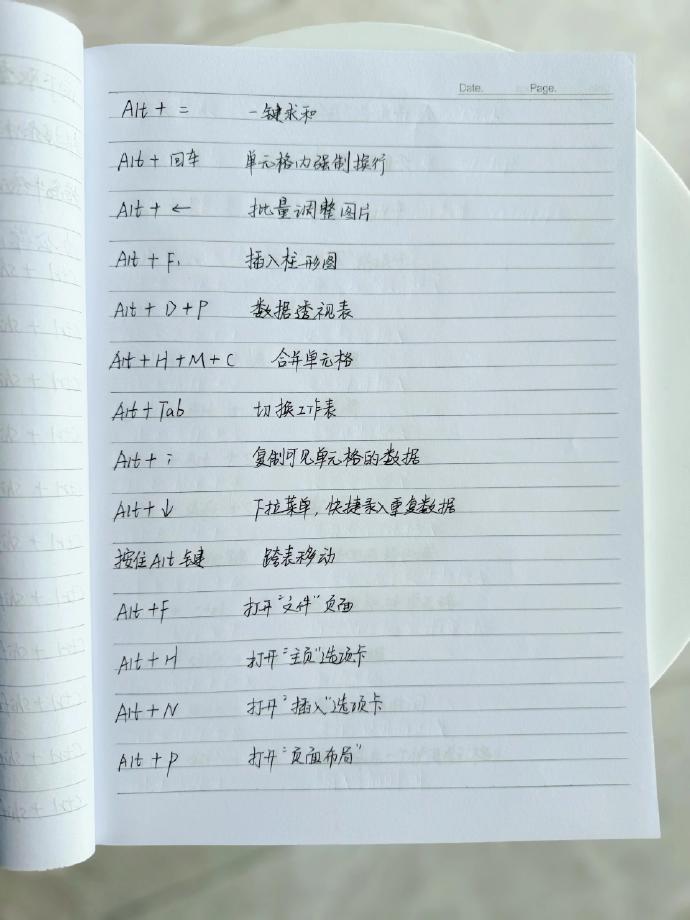 Date. Page.
Alt + = 一键求和
Alt + 回车 单元格内强制换行
Alt + ← 批量调整图片
Alt + F1 插入柱形图
Alt + D + P 数据透视表
Alt + H + M + C 合并单元格
Alt + Tab 切换工作表
Alt + ; 复制可见单元格的数据
Alt + ↓ 下拉菜单,快捷录入重复数据
按住Alt键 跨表移动
Alt + F 打开“文件”页面
Alt + H 打开“主页”选项卡
Alt + N 打开“插入”选项卡
Alt + P 打开“页面布局”